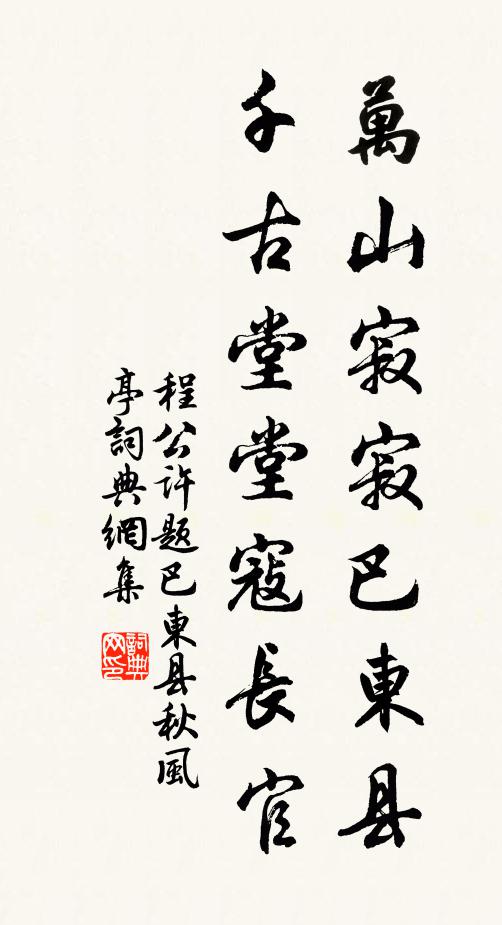 萬山寂寂巴東县
千古堂堂寇長官
程公许题巴東县秋風
亭詞典網集
詞典网印